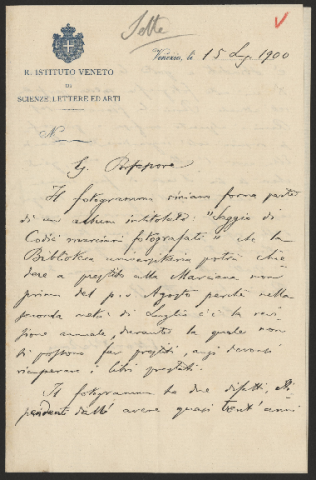 Sette
R. ISTITUTO VENETO
DI
SCIENZE LETTERE ED ARTI
Venezia, li 15 Lug. 1900
N.
Eg. Professore
Il fotogramma rinviano forma parte
di un album intitolato: "Saggio di
Codici marciani fotografati" che la
Biblioteca universitaria potrà chie
dere a prestito alla Marciana non
prima del p. v. Agosto perché nella
seconda metà di Luglio c'è la revi
sione annuale, durante la quale non
si possono far prestiti, anzi devonsi
ricuperare i libri prestati.
Il fotogramma ha due difetti, di
pendenti dall' avere quasi trent' anni